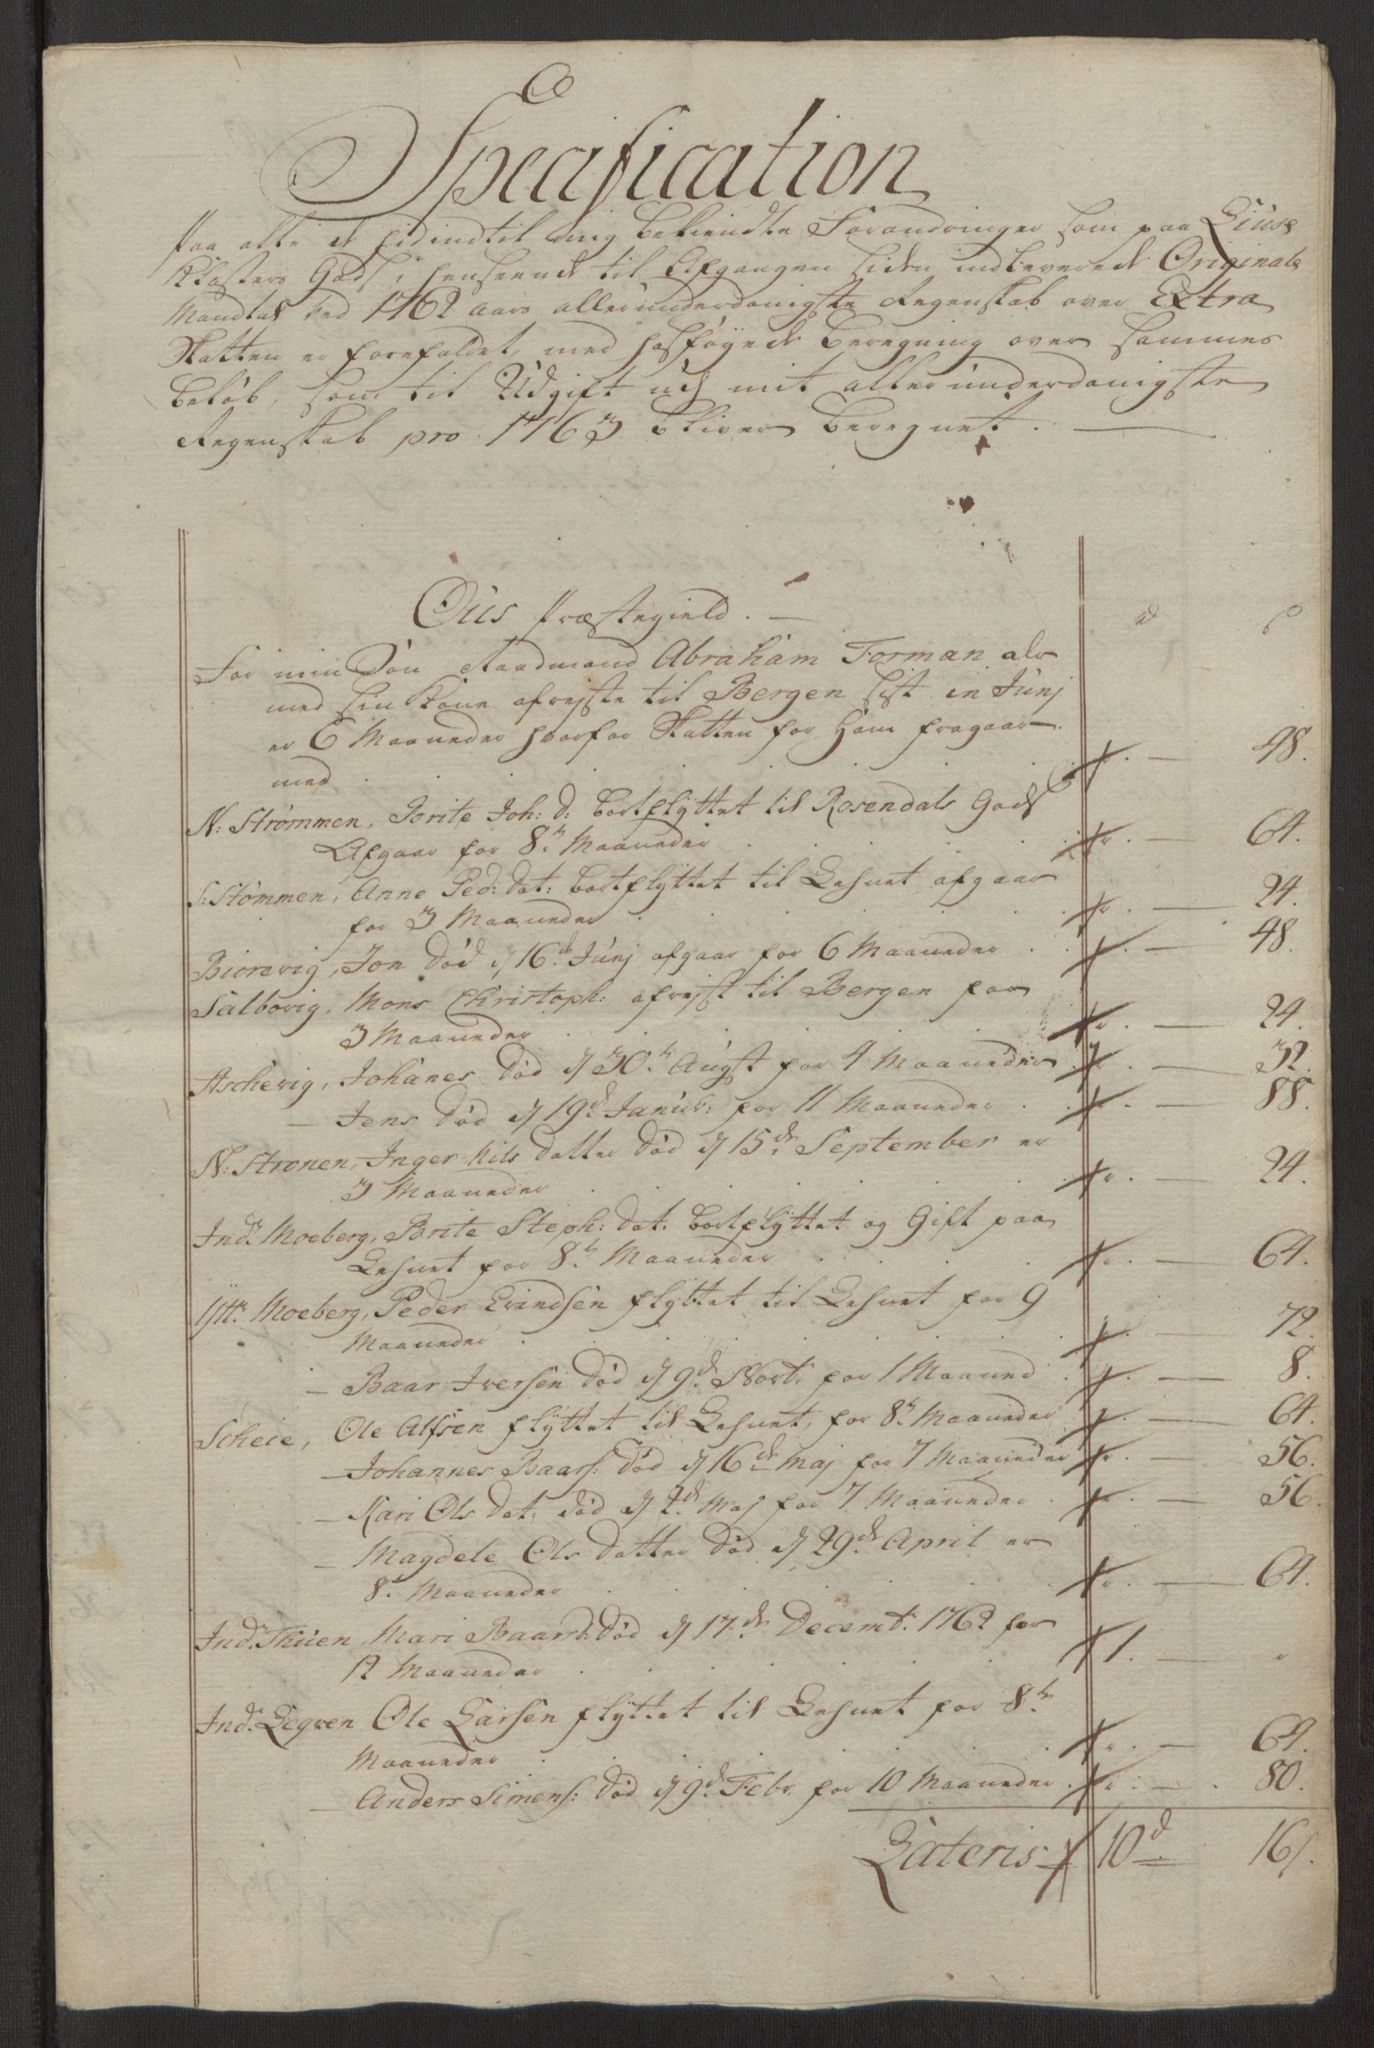 Specification
Paa alle de hidindtil mig bekiendte Forandringer som paa Liuse
Klosters Gods, i henseende til Afgangen siden indleverede Original
Mandtal ved 1762 aars allerunderdanigste Regenskab over Extra
Skatten er forefaldet, med hosføyede beregning over sammes
beløb, som til Udgift udj mit allerunderdanigste
Regenskab pro 1763 bliver beregnet.
Ous Præstegield.
For min Søn Raadmand Abraham Forman als
med sin Kone afrejste til Bergen sist in Junj
er 6 Maaneder hvorfor Skatten for ham fragaar
med . . . 48.
N: Strømmen, Brite Joh: d: bortflyttet til Rosendals Gods
Afgaar for 8te Maaneder . . . 64.
S: Stømmen, Anne Ped: dat: bortflyttet til Lehnet afgaar
for 3 Maaneder . . . 24.
Biorevig, Jon død d 16de Junj afgaar for 6 Maaneder . . 48.
Salborig, Mons Christoph: afrejst til Bergen for
3 Maaneder . . . 24.
Aschevig, Johanes død d 30te Augst for 4 Maaneder 32.
— Jens død d 19de Janua: for 11 Maaneder . . 88.
N: Stronen, Inger Nils datter død d 15de September er
3 Maaneder . . . 24.
Indr Moeberg, Brite Steph: dat. bortflyttet og Gift paa
Lehnet for 8te Maaneder . . . 64.
Yttr Moeberg, Peder Erindsen flyttet til Lehnet for 9
Maaneder . . . 72.
— Baar Iversen død d 9de Novbr: for 1 Maaned . 8.
Scheie, Ole Alfsen flyttet til Lehnet, for 8te Maaneder 64.
— Johannes Baars: død d 16de Maj for 7 Maaneder 56.
— Kari Ols dat. død d 2de Maj for 7 Maaneder . 56.
— Magdele Ols datter død d 29de April er
8te Maaneder . . . 64.
Indr Thuen Mari Baard: død d 17de Decembr: 1762 for
12 Maaneder . . . 1. —
Indr Legven Ole Larsen flyttet til Lehnet for 8te
Maaneder . . . 64.
— Anders Simens: død d 9de Febr. for 10 Maaneder . 80.
Lateris 10 d 16 s.